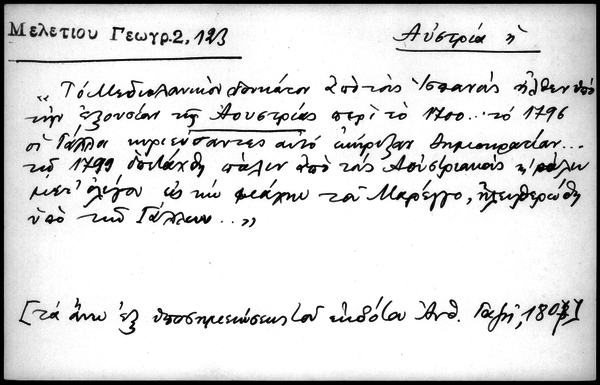 Μελετίου Γεωγρ. 2, 123
Αὐστρία ἡ
„ Τό Μεδιολανικὸν δουκάτον ἀπὸ τοὺς Ἱσπανοὺς ἦλθεν ὑπὸ
τὴν ἐξουσίαν τῆς Ἀουστρίας περὶ τὸ 1700... τό 1796
οἱ Γάλλοι κυριεύσαντες αὐτό ἐκήρυξαν δημοκρατίαν...
τῷ 1799 πάλιν ἀπὸ τοὺς Αὐστριακούς πάλιν
μετ' ὀλίγον εἰς τὴν μάχην τοῦ Μαρέγγο, ἠλευθερώθη
ὑπὸ τῶν Γάλλων..„
[τά ἄνω ἐξ ὑποσημειώσεως τοῦ ἐκδότου Ἀνθ. Γαζῆ, 1807]